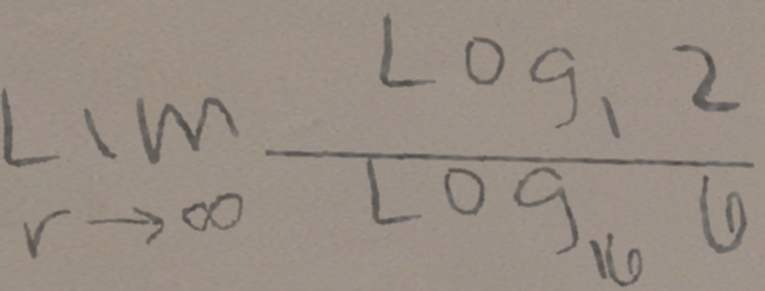 Lim r→∞ Log₁ 2 / Log₁₆ 6